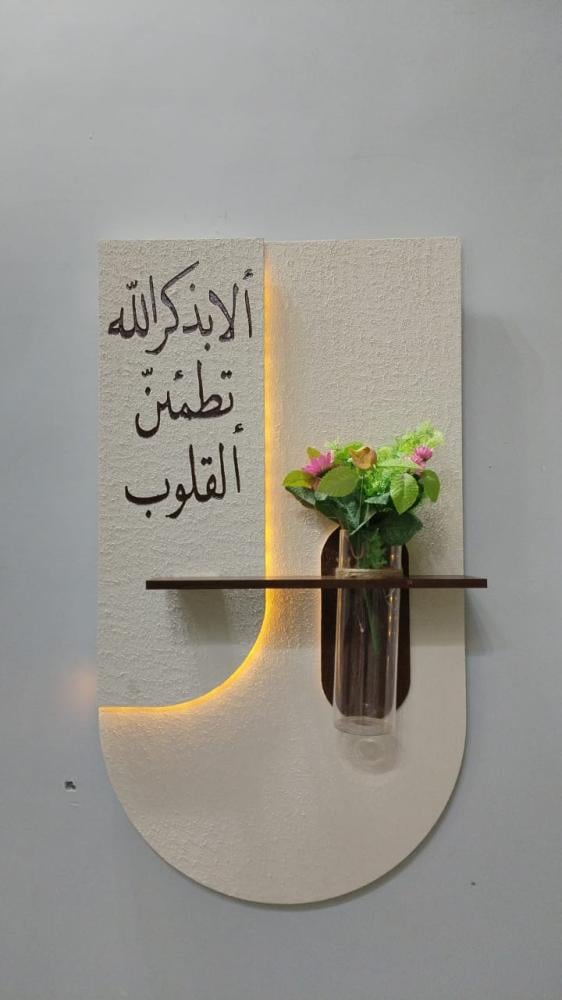 ألا بذكر الله
تطمئنّ
ألقلوب